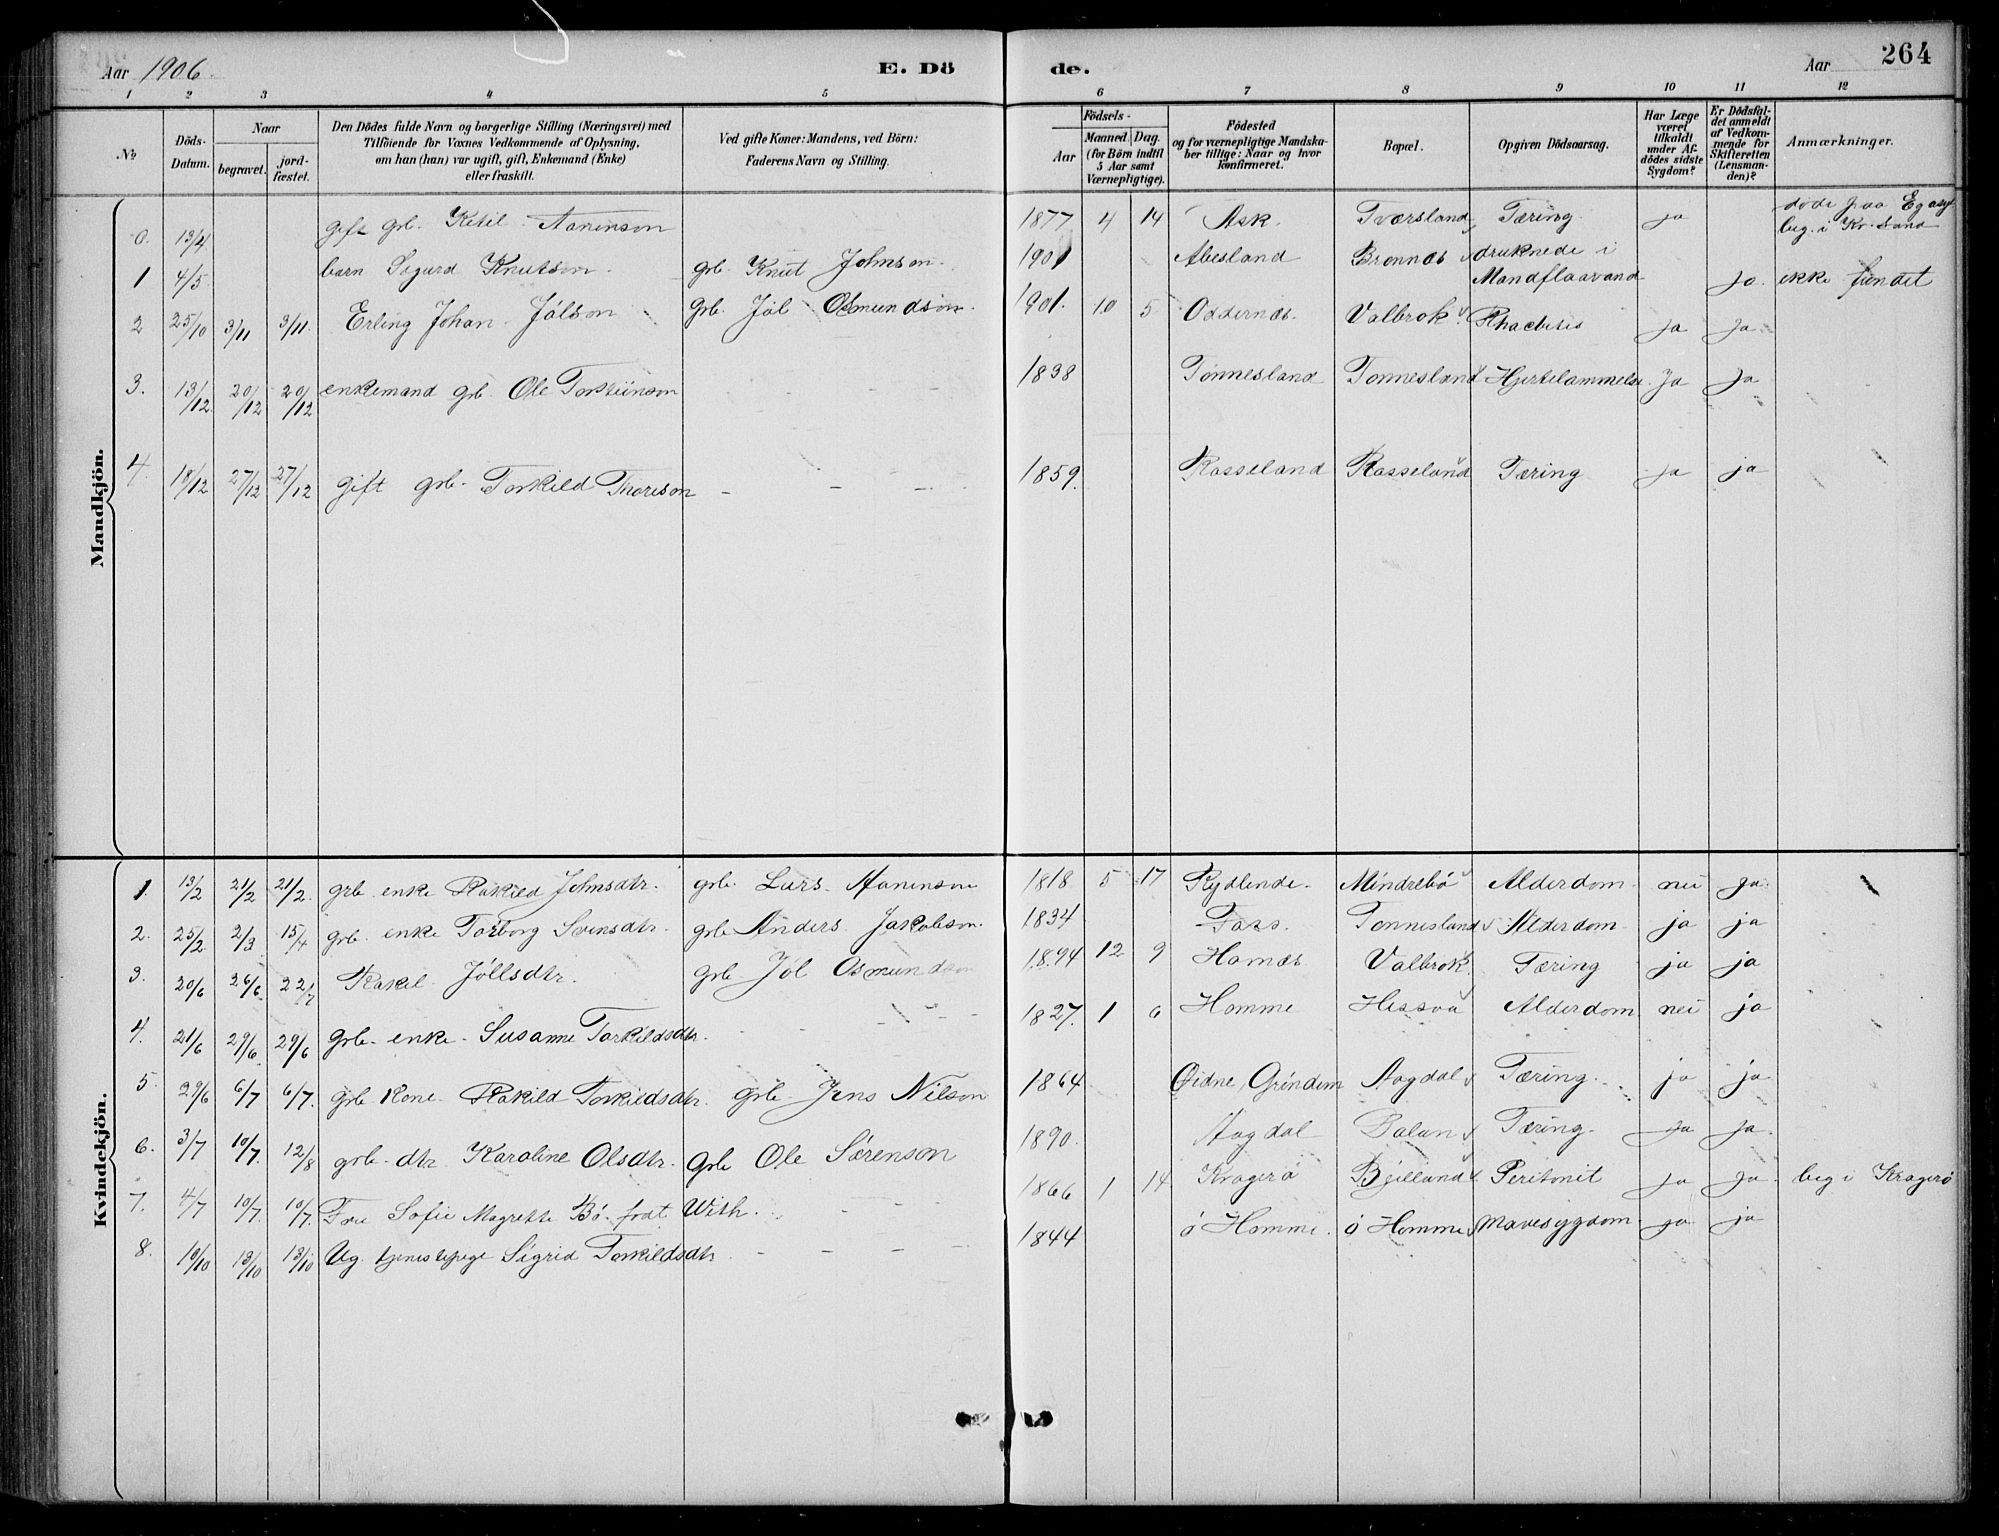 Aar 1906. E. Dö de. Aar 264
1 2 3 4 5 6 7 8 9 10 11 12
No Döds-Datum. Naar begravet. jord-fæstet. Den Dödes fulde Navn og borgerlige Stilling (Næringsvei) med Tilföiende for Voxnes Vedkommende af Oplysning, om han (hun) var ugift, gift, Enkemand (Enke) eller fraskilt. Ved gifte Koner: Mandens, ved Börn: Faderens Navn og Stilling. Födsels- Aar Maaned. Dag. (for Börn indtil 5 Aar samt Værnepligtige). Födested og for værnepligtige Mandskaber tillige: Naar og hvor konfirmeret. Bopæl. Opgiven Dödsaarsag. Har Læge været tilkaldt under Afdödes sidste Sygdom? Er Dödsfaldet anmeldt af Vedkommende for Skifteretten (Lensmanden)? Anmærkninger.
Mandkjön.
0. 13/4 gift grb. Ketil Aanenson 1877 4 14 Ask. Tværsland Tæring ja döde paa Eg asyl beg. i Kr. Sand
1 4/5 barn Sigurd Knutson grb. Knut Johnson. 1901 Abesland Brennæs druknede i Mandflaavand ja. ikke fundet
2 25/10 3/11 3/11. Erling Johan Jölson grb. Jöl Osmundson 1901. 10 5 Oddernæs. Valbrok Rhachitis ja ja
3. 13/12 20/12 20/12 enkemand grb. Ole Torsteinson - - - 1838 Tönnesland Tonnesland Hjertelammelse. Ja ja
4. 18/12 27/12 27/12 gift grb. Torkild Thorison - - - 1859. Rosseland Rosseland Tæring ja ja
Kvindekjön.
1. 13/2 21/2 21/2. grb. enke Rakild Johnsdtr. grb. Lars Aanenson 1818 5 17 Rydlende. Mindrebö Alderdom nei ja
2. 25/2 2/3 15/4 grb. enke Torborg Svensdtr. grb Anders Jakobson. 1834 Foss. Tonnesland Alderdom ja ja
3. 20/6 26/6. 22/7 Rakel Jöllsdtr. grb. Jöl Osmundson 1894 12 9 Hornæs Valbrok Tæring ja ja
4. 21/6 29/6. 29/6 grb. enke Susanne Torkildsdtr. - - - 1827. 1 6 Homme Hessvå Alderdom nei ja
5. 29/6 6/7 6/7. grb. Kone Rakild Torkildsdtr. grb. Jens Nilson 1864 Öidne, Grindem Aagdal Tæring. ja ja
6. 3/7 10/7. 12/8 grb. dtr. Karoline Olsdtr. grb Ole Sörenson 1890. Aagdal Balan Tæring. ja ja.
7. 4/7 10/7. 10/7. Fru Sofie Magrette Bö. född With. - - 1866 1 14 Kragerö Bjelland Peritonit ja ja. beg i Kragerö
8. 10/10 13/10 13/10 Ug. tjenestepige Sigrid Torkildsdtr. - - - - 1844 ö Homme. ö Homme Mavesygdom ja ja